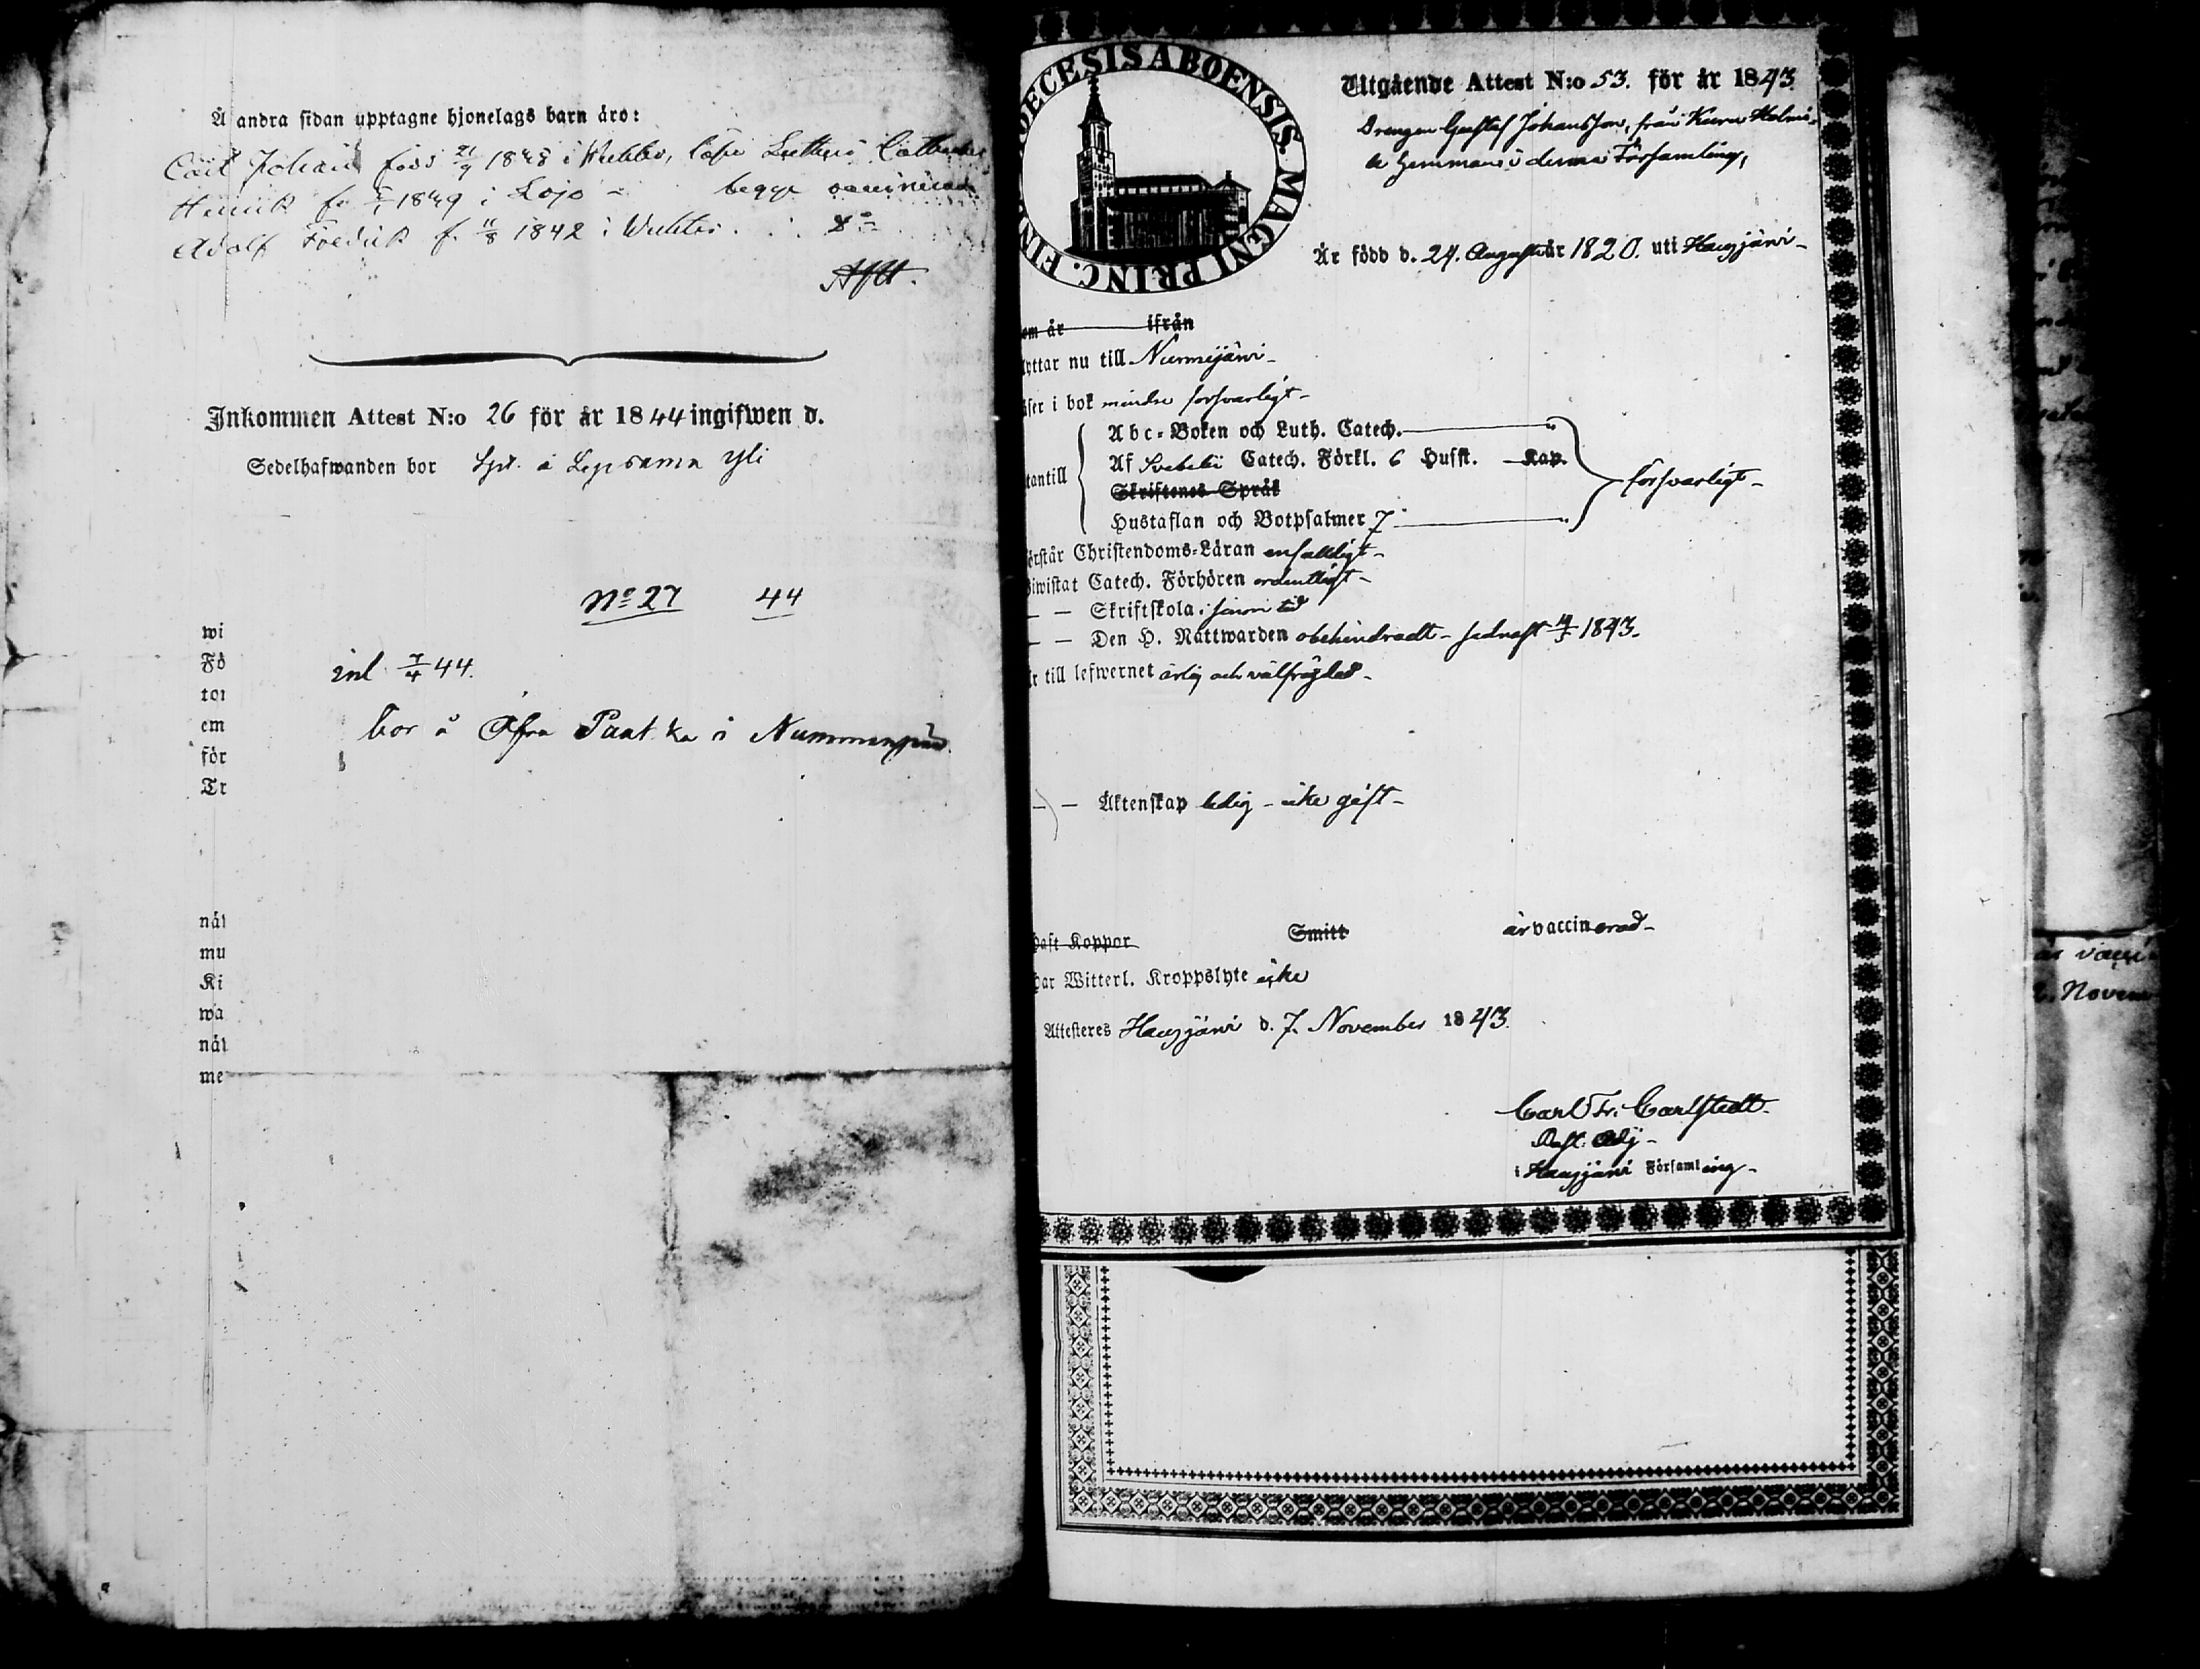 Å andra sidan upptagne hjonelags barn äro:
Carl Johan född 21/9 1838 i Wichtis, läser Lutheri
Henrik f. 1/1 1849 i Lojo - begge vaccinerade
Adolf Fredrik f. 11/8 1842 i Wichtis . . . do
Inkommen Attest N:o 26 för år 1844 ingifwen d.
Sedelhafwanden bor å Lepsama Yli
No 27 44
wi
Fö
inl 7/4 44.
tor
em
bor å Öfra Paat ka i Nummenpää.
för
Tr
nåt
mu
Ki
wa
nåt
me
DECESIS ABOENSIS. MAGNI PRINC. FIN
Utgående Attest N:o 53. för år 1843
Drengen Gustaf Johansson, från Kuru Holmi-
la hemman i denna Församling,
Är född d. 24. Augusti år 1820. uti Hausjärvi -
om år ifrån
lyttar nu till Nurmijärvi -
äser i bok mindre försvarligt -
Abc-Boken och Luth. Catech. "
Af Svebelii Catech. Förkl. 6 Hufst. Kap.
tantill
försvarligt -
Skriftenes Språk
Hustaflan och Botpsalmer 7 "
örstår Christendoms-Läran enfaldigt -
iwistat Catech. Förhören ordentligt -
— — Skriftskola i sinom tid
— — Den H. Nattwarden obehindradt - sednast 1843.
r till lefwernet ärlig och välfrägdad -
— — Äktenskap ledig - icke gift -
haft Koppor Smitt är vaccinerad -
har Witterl. Kroppslyte icke
Attesteres Hausjärvi d. 7. November 1843.
Carl Fr: Carlstedt.
Past. Adj -
i Hausjärvi Församling -